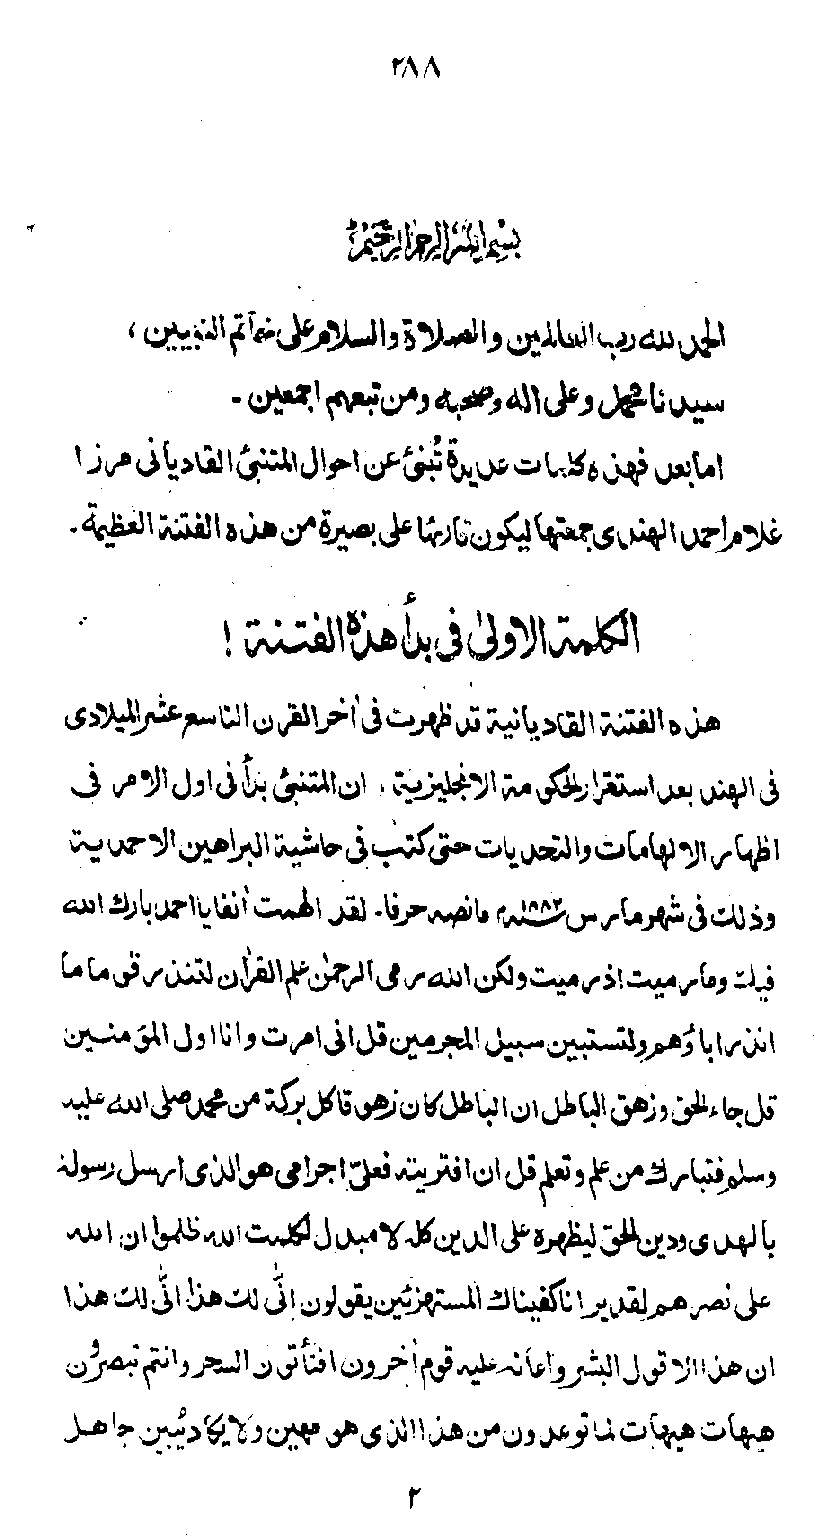 ٢٨٨
بسم الله الرحمن الرحيم
الحمد لله رب العالمين والصلاة والسلام على خاتم النبيين،
سيدنا محمد وعلى اله وصحبه ومن تبعهم اجمعين ۔
اما بعد فهذه كلمات عديدة تُنبئ عن احوال المتنبئ القاديانى مرزا
غلام احمد الهندى جمعتها ليكون قارئها على بصيرة من هذه الفتنة العظيمة ۔
الكلمة الاولىٰ فى بدأ هذة الفتنة !
هذه الفتنة القاديانية قد ظهرت فى أخر القرن التاسع عشر الميلادى
فى الهند بعد استقرار الحكومة الانجليزية ، ان المتنبئ بدأ فى اول الامر فى
اظهار الالهامات والتحديات حتى كتب فى حاشية البراهين الاحمدية
وذلك فى شهر مارس سنه ١٨٨٢م مانصه حرفا۔ لقد الهمت أنفا يا احمد بارك الله
فيك وما رميت اذ رميت ولكن الله رمى الرحمٰن علم القرأن لتنذر قوما ما
انذر اباؤهم ولتستبين سبيل المجرمين قل انى امرت وانا اول المؤمنين
قل جاء الحق وزهق الباطل ان الباطل كان زهوقا كل بركة من محمد صلى الله عليه
وسلم فتبارك من علم وتعلم قل ان افتريته فعلىّ اجرامى هو الذى ارسل رسوله
بالهدى ودين الحق ليظهره على الدين كله لا مبدل لكلمٰت الله ظلموا ان الله
على نصرهم لقدير انا كفيناك المستهزئين يقولون انّٰى لك هذا انّٰى لك هذا
ان هذا الا قول البشر واعانه عليه قوم أخرون افتأتون السحر وانتم تبصرون
هيهات هيهات لما توعدون من هذا الذى هو مهين ولا يكاد يُبين جاهل
٢